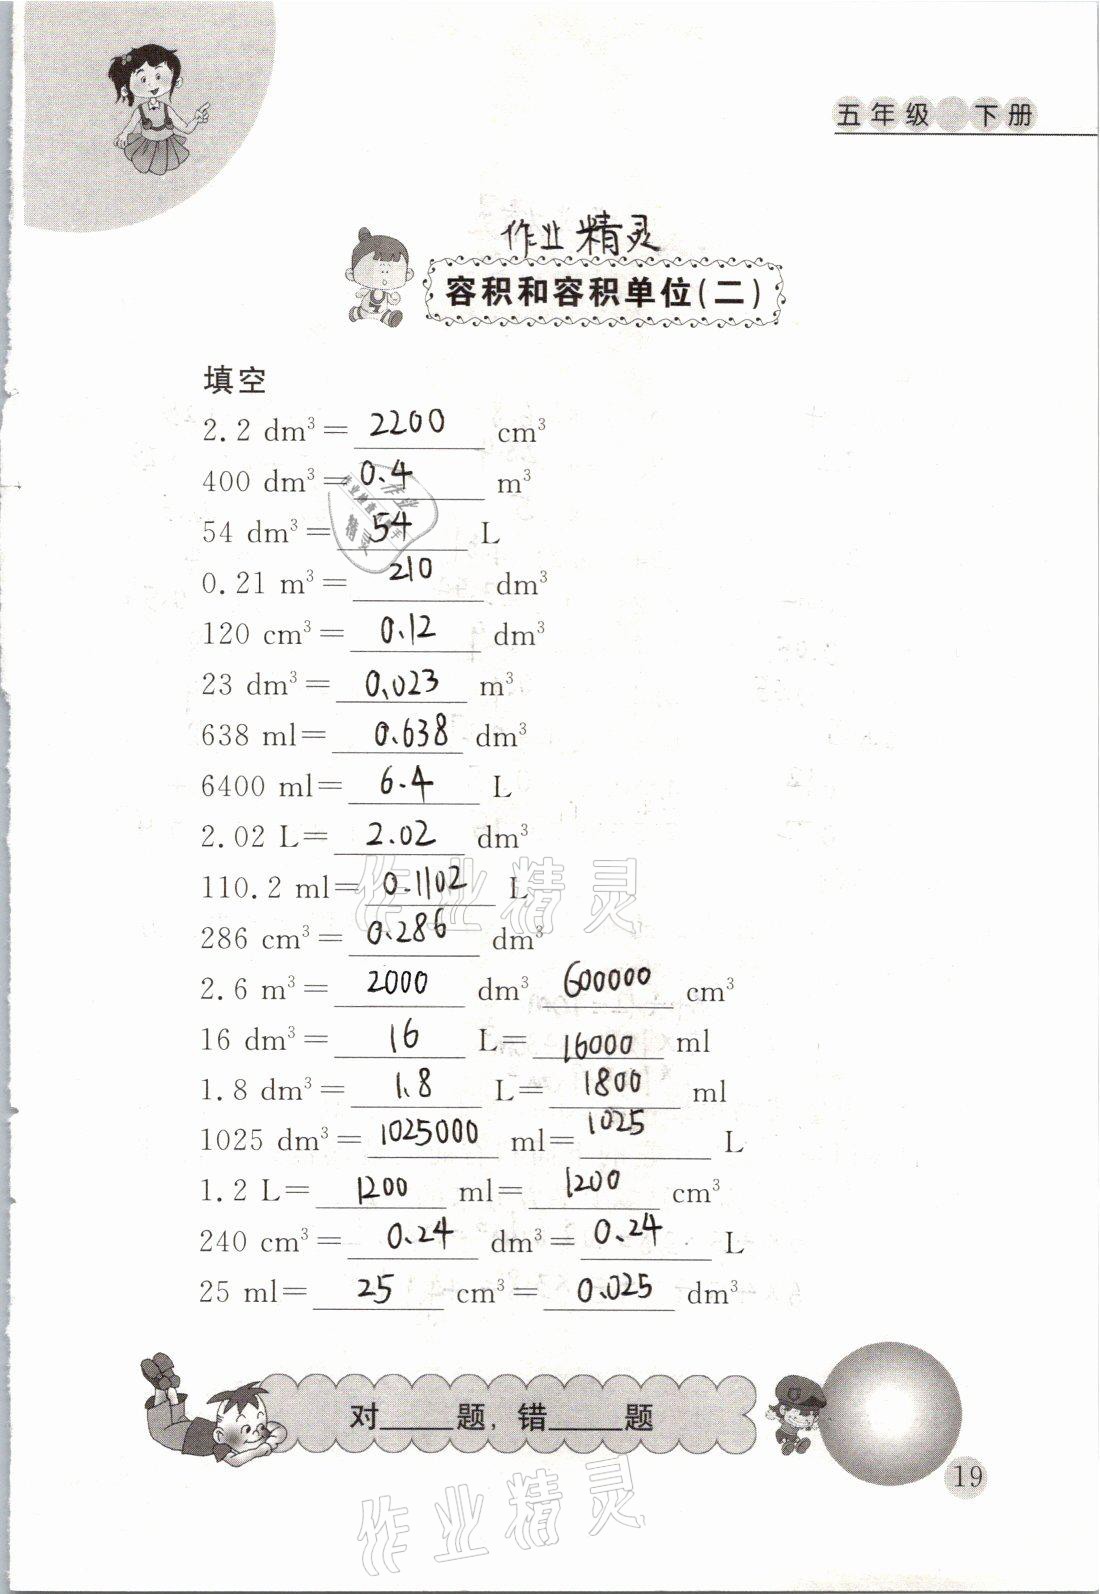 五年级 下册
作业精灵
容积和容积单位(二)
填空
2.2 dm³= 2200 cm³
400 dm³= 0.4 m³
54 dm³= 54 L
0.21 m³= 210 dm³
120 cm³= 0.12 dm³
23 dm³= 0.023 m³
638 ml= 0.638 dm³
6400 ml= 6.4 L
2.02 L= 2.02 dm³
110.2 ml= 0.1102 L
286 cm³= 0.286 dm³
2.6 m³= 2000 dm³ 600000 cm³
16 dm³= 16 L= 16000 ml
1.8 dm³= 1.8 L= 1800 ml
1025 dm³= 1025000 ml= 1025 L
1.2 L= 1200 ml= 1200 cm³
240 cm³= 0.24 dm³= 0.24 L
25 ml= 25 cm³= 0.025 dm³
对____题,错____题
19
作业精灵
作业精灵
作业
精灵